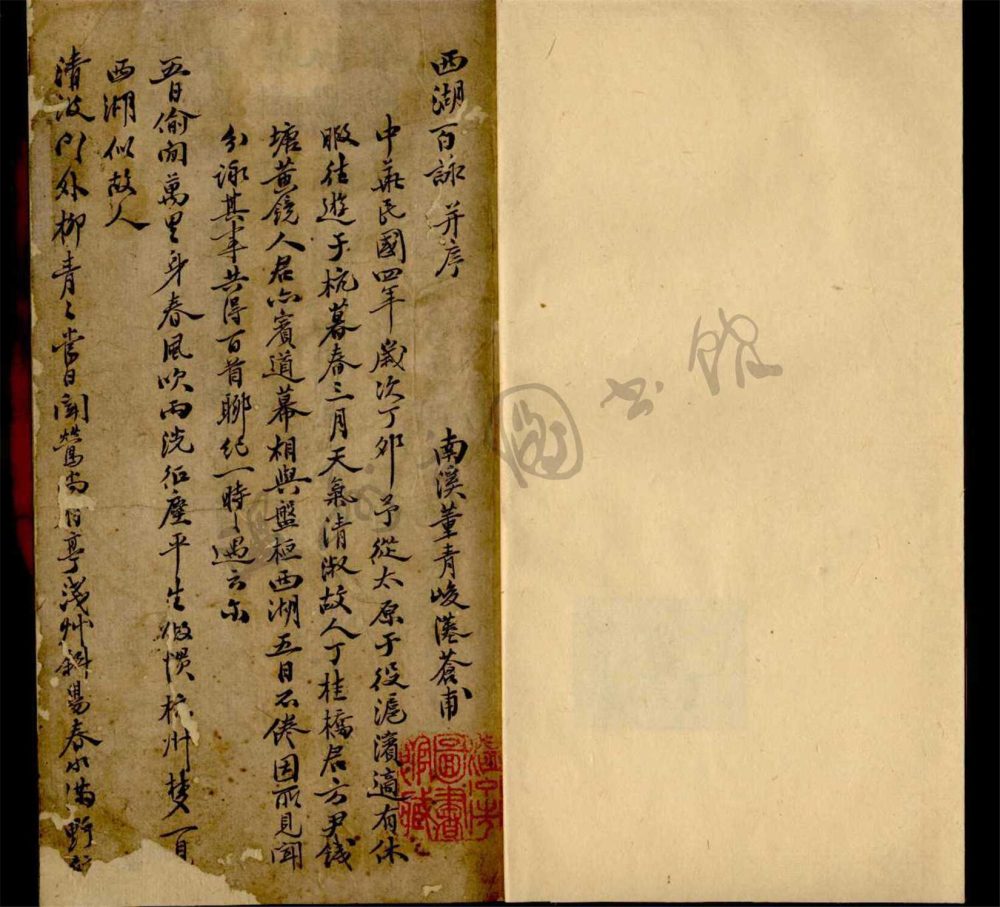 西湖百詠 并序
南溪董青峻蒼甫
中華民國四年歲次丁卯予從太原于役滬濱適有休
暇往遊于杭暮春三月天氣清淑故人丁桂橋君方尹錢
塘黄鏡人君亦賓道幕相與盤桓西湖五日不倦因所見聞
分詠其事共得百首聊紀一時之遇云尔
五日偷閒萬里身春風吹雨洗征塵平生做慣杭州夢一見
西湖似故人
清波門外柳青々當日聞鶯尚有亭淺艸斜陽春水滿野
圖書館藏
圖书館